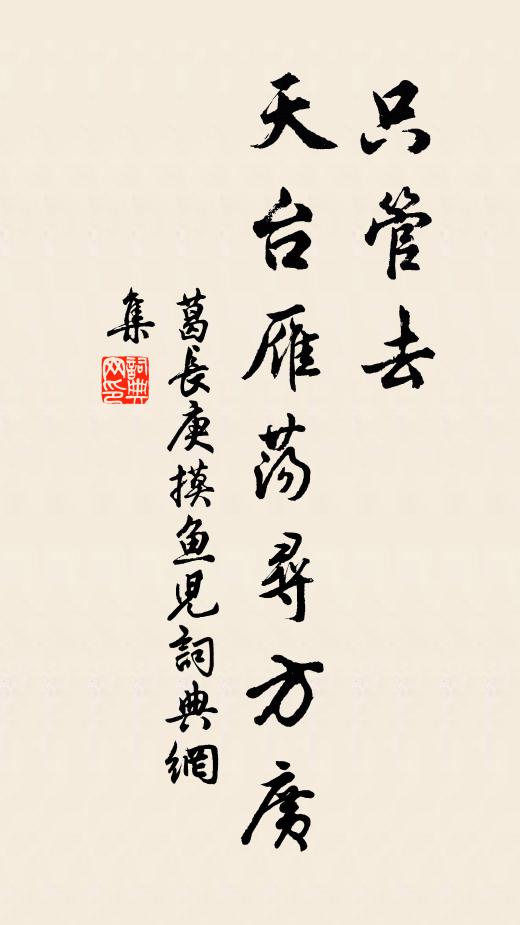 只管去
天台雁荡尋方廣
葛長庚摸鱼児詞典網
集
詞典
网印